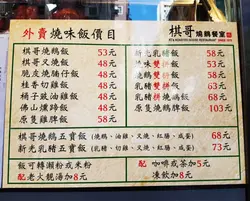 外賣燒味飯價目
棋哥燒鵝餐室
棋哥燒鵝飯 53元
棋哥叉燒飯 48元
脆皮燒腩仔飯 48元
桂香切雞飯 48元
橋子豉油雞飯 48元
佛山燻蹄飯 48元
原隻雞髀飯 58元
新光乳豬飯 58元
雙拼飯 58元
雙拼飯 63元
乳豬拼燒鵝飯 68元
原隻燒鵝髀飯 103元
棋哥燒鵝五寶飯 (燒鵝、油雞、叉燒、紅腸、咸蛋) 68元
新光乳豬五寶飯 (乳豬、切雞、叉燒、紅腸、咸蛋) 73元
飯可轉瀨粉或米粉
配老火靚湯加8元
配 咖啡或茶加5元
凍飲加8元